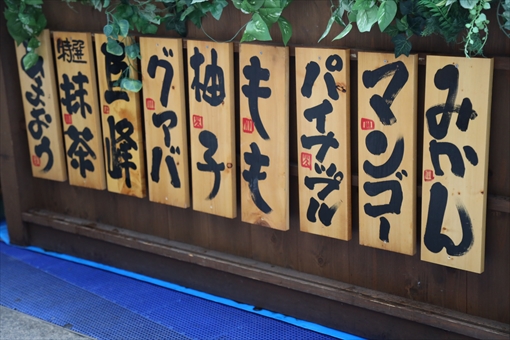 みかん
マンゴー
パイナップル
もも
柚子
グァバ
巨峰
特選
抹茶
まおう